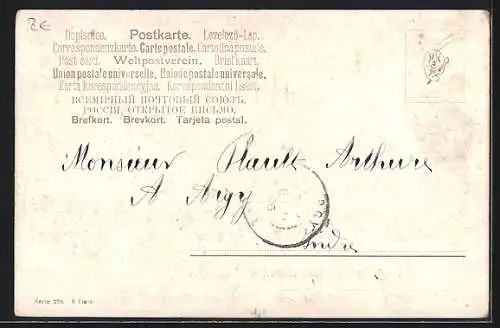 8€
Dopisnice. Postkarte. Levelező-Lap.
Correspondenzkarte. Carte postale. Cartolina postale.
Post card. Weltpostverein. Briefkaart.
Union postale universelle. Unione postale universale.
Karta korespondencyjna. Korespondenční listek.
ВСЕМІРНЫЙ ПОЧТОВЫЙ СОЮЗЪ.
РОССІЯ. ОТКРЫТОЕ ПИСЬМО.
Brefkort. Brevkort. Tarjeta postal.
Monsieur Plault Arthure
A Argy
Indre
Serie